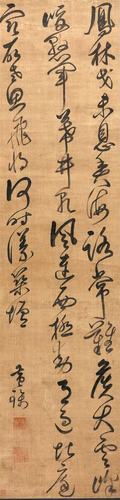 鳳林戈未息魚海路常難候火雲烽
峻懸軍幕井乾風連西極動月過北庭
寒故老思飛將何時議築壇